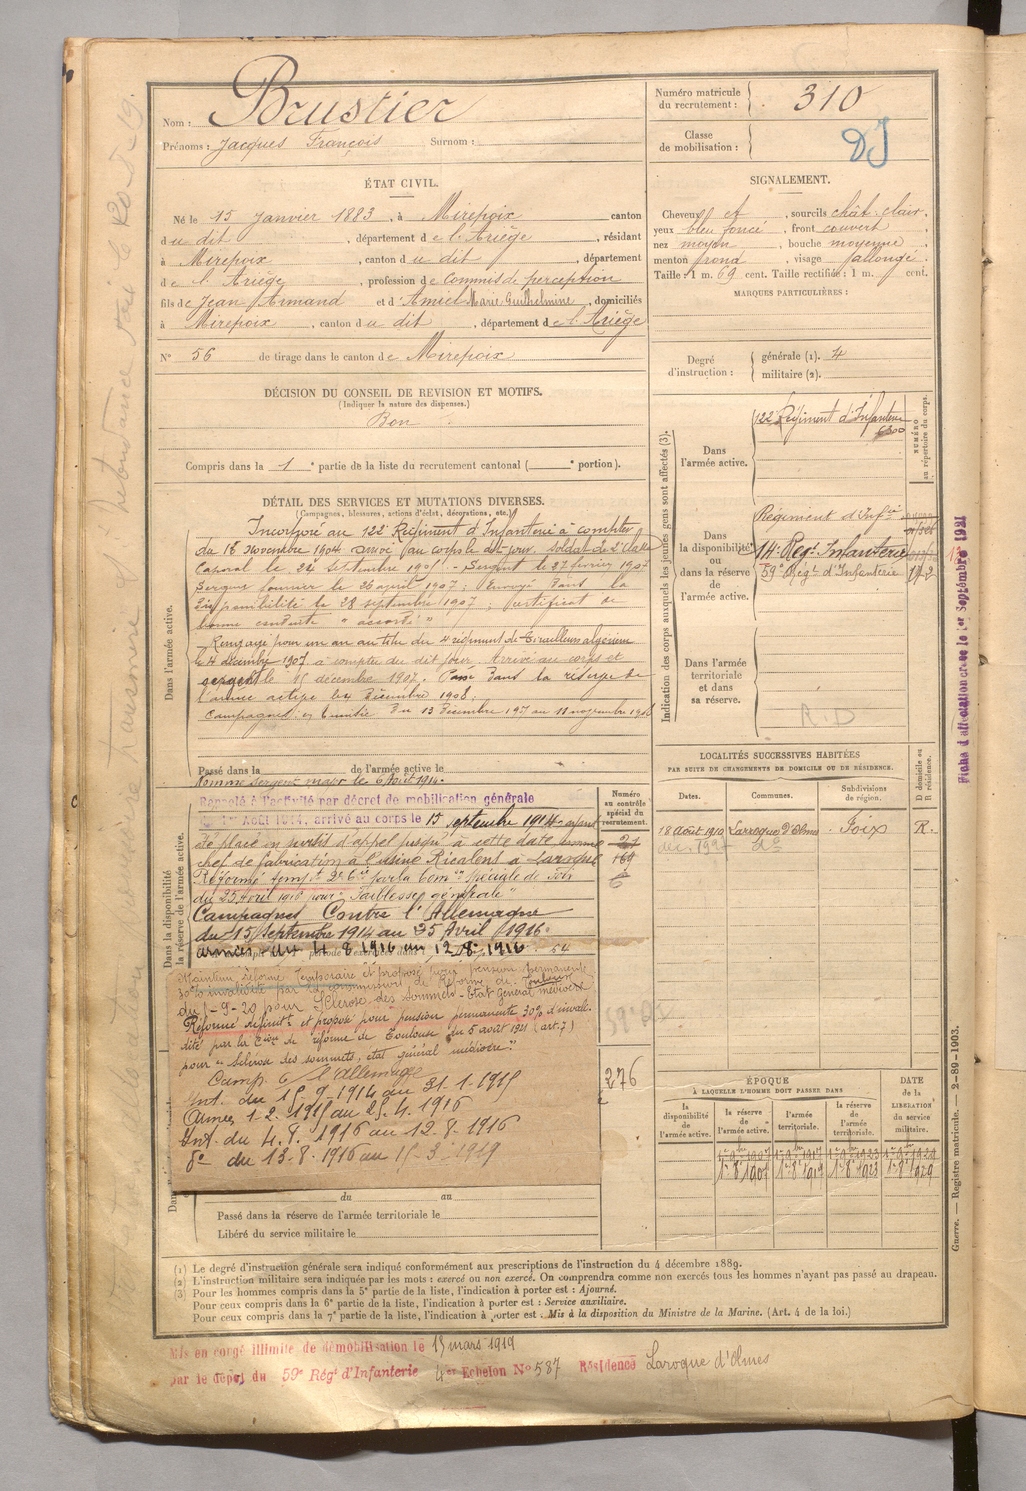 Nom : Brustier
Prénoms : Jacques François Surnom :
Numéro matricule du recrutement : 310
Classe de mobilisation :
ÉTAT CIVIL.
Né le 15 Janvier 1883, à Mirepoix canton
du dit, département de l'Ariège, résidant
à Mirepoix, canton du dit, département
de l'Ariège, profession de Commis de perception
fils de Jean Armand et d'Amiel Marie Guilhelmine, domiciliés
à Mirepoix, canton du dit, département de l'Ariège
N° 56 de tirage dans le canton de Mirepoix
SIGNALEMENT.
Cheveux et, sourcils chât. clair,
yeux bleu foncé, front couvert
nez moyen, bouche moyenne
menton rond, visage allongé
Taille : 1 m. 69 cent. Taille rectifiée : 1 m. cent.
MARQUES PARTICULIÈRES :
Degré d'instruction : générale (1). 4
militaire (2).
DÉCISION DU CONSEIL DE REVISION ET MOTIFS.
(Indiquer la nature des dispenses.)
Bon
Compris dans la 1e partie de la liste du recrutement cantonal ( e portion).
DÉTAIL DES SERVICES ET MUTATIONS DIVERSES.
(Campagnes, blessures, actions d'éclat, décorations, etc.)
Dans l'armée active.
Incorporé au 122e Régiment d'Infanterie à compter
du 16 novembre 1904 arrivé au corps le dit jour, soldat de 2e classe
Caporal le 24 septembre 1905 - Sergent le 27 février 1907
Sergent fourrier le 26 avril 1907; Envoyé dans la
disponibilité le 28 septembre 1907; certificat de
bonne conduite "accordé"
Rengagé pour un an au titre du 4 régiment de Tirailleurs algériens
le 4 décembre 1907 à compter du dit jour. Arrivé au corps et
sergent le 15 décembre 1907. Passé dans la réserve de
l'armée active le 4 Décembre 1908.
Campagnes : en Tunisie Du 13 Décembre 1907 au 11 novembre 1908
Passé dans la de l'armée active le
Nommé Sergent major le 6 Août 1914.
Dans la disponibilité ou dans la réserve de l'armée active.
Rappelé à l'activité par décret de mobilisation générale
du 1er Août 1914, arrivé au corps le 15 septembre 1914 ayant
été placé en sursis d'appel jusqu'à cette date comme
chef de fabrication à l'usine Ricalens à Laroque
Réformé temp. 2e Cie par la Com. Spéciale de Foix
du 25 Avril 1916 pour "Faiblesse générale"
Campagnes Contre l'Allemagne
du 15 Septembre 1914 au 25 Avril 1916.
du 4 8 1916 au 12 8 1916
Maintenu Réformé Temporaire et proposé pour pension permanente
30% invalidité par la commission de Réforme de Toulouse
du 1-9-20 pour Sclérose des sommets - Etat général médiocre
Réformé définit. et proposé pour pension permanente 30% d'invali-
dité par la Con de réforme de Toulouse du 5 août 1921 (art. 7)
pour "Sclérose des sommets, état général médiocre."
Camp. c/ l'Allemagne
Int. du 15.9.1914 au 31.1.1915
Armées 1.2.1915 au 25.4.1916
Int. du 4.8.1916 au 12.8.1916
do du 13.8.1916 au 15-3-1919
du au
Passé dans la réserve de l'armée territoriale le
Libéré du service militaire le
Numéro au contrôle spécial du recrutement.
276
Indication des corps auxquels les jeunes gens sont affectés (3).
NUMÉRO au répertoire du corps.
Dans l'armée active.
122 Régiment d'Infanterie
Dans la disponibilité ou dans la réserve de l'armée active.
Régiment d'Infie
14e Régt Infanterie
59e Régt d'Infanterie
Dans l'armée territoriale et dans sa réserve.
R.D
LOCALITÉS SUCCESSIVES HABITÉES
PAR SUITE DE CHANGEMENTS DE DOMICILE OU DE RÉSIDENCE.
Dates. Communes. Subdivisions de région. D domicile ou R résidence.
18 Août 1910 Laroque d'Olmes Foix R.
ÉPOQUE
À LAQUELLE L'HOMME DOIT PASSER DANS
la disponibilité de l'armée active. la réserve de l'armée active. l'armée territoriale. la réserve de l'armée territoriale.
DATE de la LIBÉRATION du service militaire.
1er 8 1907 1er 8 1923 1er 8 1929
(1) Le degré d'instruction générale sera indiqué conformément aux prescriptions de l'instruction du 4 décembre 1889.
(2) L'instruction militaire sera indiquée par les mots : exercé ou non exercé. On comprendra comme non exercés tous les hommes n'ayant pas passé au drapeau.
(3) Pour les hommes compris dans la 5e partie de la liste, l'indication à porter est : Ajourné.
Pour ceux compris dans la 6e partie de la liste, l'indication à porter est : Service auxiliaire.
Pour ceux compris dans la 7e partie de la liste, l'indication à porter est : Mis à la disposition du Ministre de la Marine. (Art. 4 de la loi.)
Mis en congé illimité de démobilisation le 15 mars 1919
par le dépôt du 59e Régt d'Infanterie 4er Echelon N° 587 Résidence Laroque d'Olmes
Guerre. — Registre matricule. — 2-89-1903.
Fiche d'affectation créée le 1er Septembre 1921